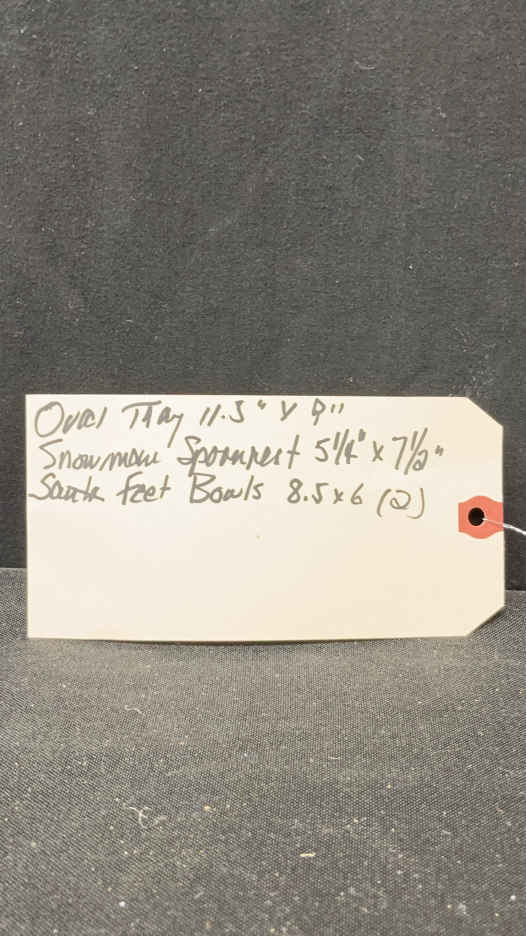 Oval Tray 11.5" x 9"
Snowman Spoonrest 5 1/4" x 7 1/2"
Santa feet Bowls 8.5 x 6 (2)